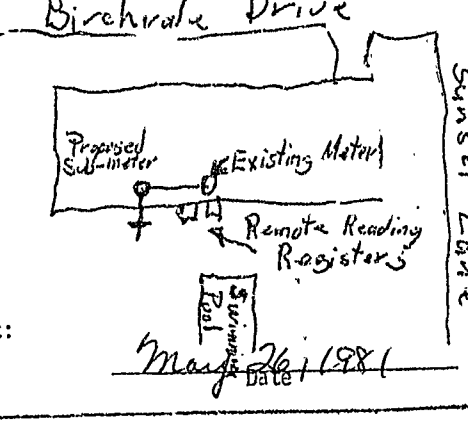 Birchvale Drive
Sunset Lane
Proposed
Sub-meter
Existing Meter
Remote Reading
Registers
Swimming
Pool
:
May 26, 1981
Date